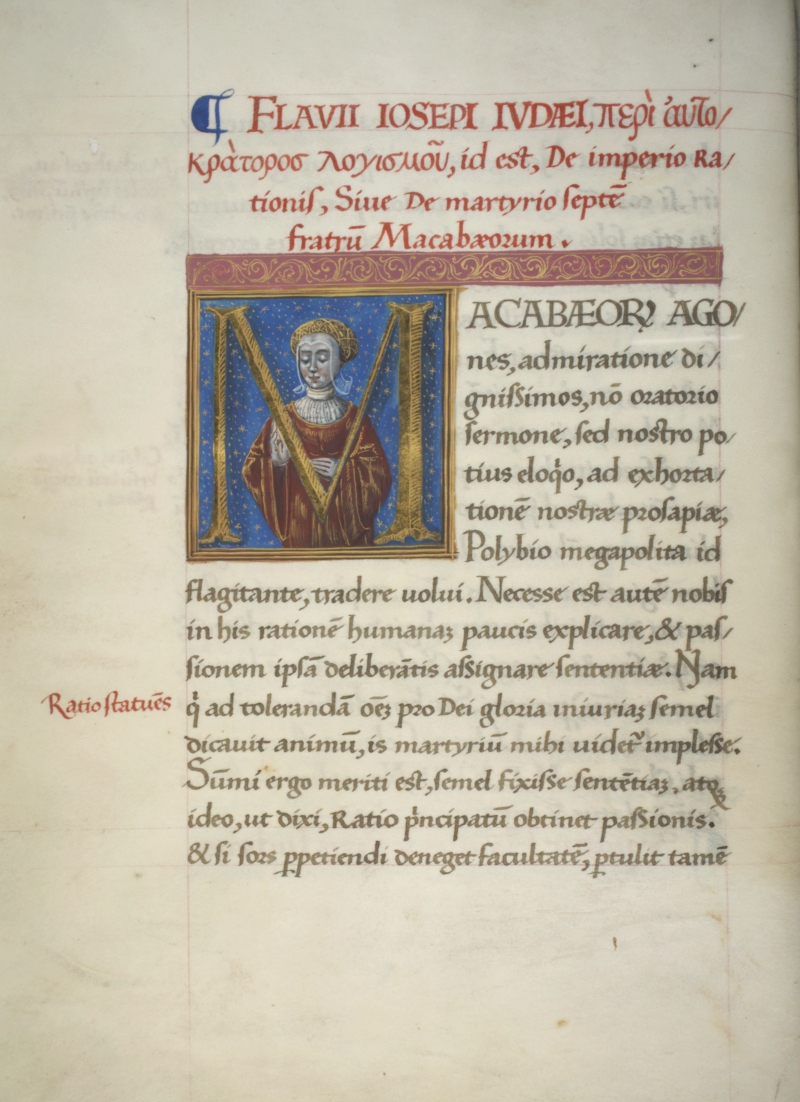 ¶ FLAVII IOSEPI IVDÆI, περὶ ἀυτο/
κράτοροσ λογισμοῦ, id est, De imperio Ra/
tionis, Siue De martyrio septē
fratrū Macabæorum.
MACABÆORꝜ AGO/
nes, admiratione di/
gnissimos, nō oratorio
sermone, sed nostro po/
tius eloq̇o, ad exhorta/
tionē nostræ prosapiæ,
Polybio megapolita id
flagitante, tradere uolui. Necesse est autē nobis
in his rationē humanaꝫ paucis explicare, & pas/
sionem ipsā deliberātis assignare sententiæ. Nam
Ratio statuēs
q̇ ad tolerandā oēꝫ pro Dei gloria iniuriaꝫ semel
dicauit animū, is martyriū mihi uidet᷑ implesse.
Sūmi ergo meriti est, semel fixisse sentētiaꝫ, atqꝫ
ideo, ut dixi, Ratio p̍ncipatū obtinet passionis.
& si sors ꝑpetiendi deneget facultatē, ꝑtulit tamē